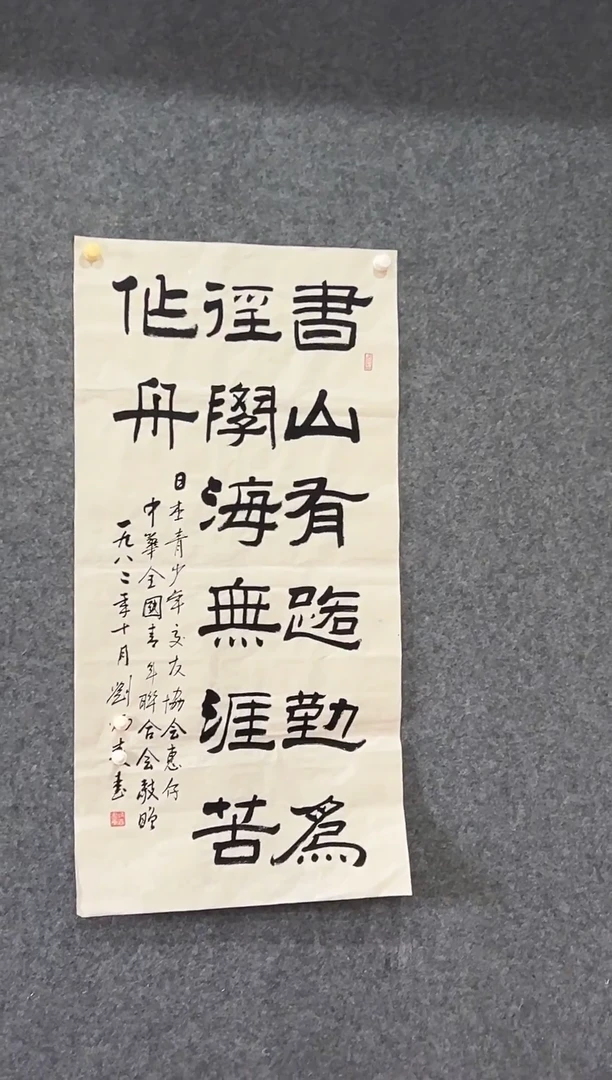 書山有路勤為
徑學海無涯苦
作舟
日本青少年交友協会惠存
中華全國青年聯合会敬贈
一九八二年十月劉志書